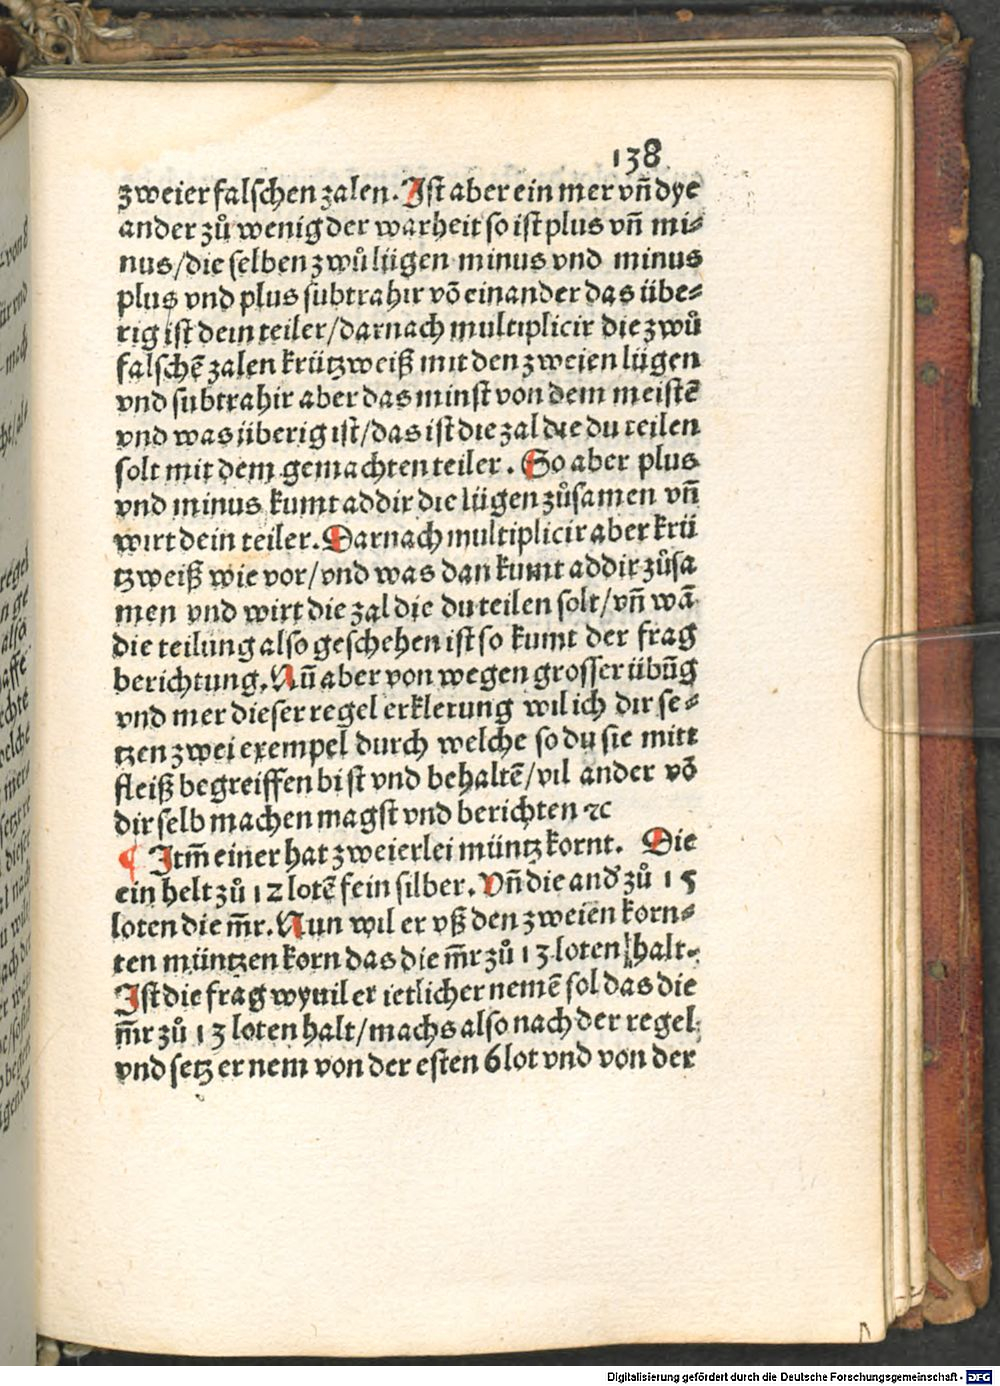 138
zweier falschen zalen. Ist aber ein mer vñ dye
ander zů wenig der warheit so ist plus vñ mi-
nus/die selben zwů lügen minus vnd minus
plus vnd plus subtrahir võ einander das übe-
rig ist dein teiler/darnach multiplicir die zwů
falschē zalen krützweiß mit den zweien lügen
vnd subtrahir aber das minst von dem meistē
vnd was überig ist/das ist die zal die du teilen
solt mit dem gemachten teiler. So aber plus
vnd minus kumt addir die lügen zůsamen vñ
wirt dein teiler. Darnach multiplicir aber krü
tzweiß wie vor/vnd was dan kumt addir zůsa
men vnd wirt die zal die du teilen solt/vñ wā
die teilung also geschehen ist so kumt der frag
berichtung. Nū aber von wegen grosser übūg
vnd mer dieser regel erklerung wil ich dir se-
tzen zwei exempel durch welche so du sie mitt
fleiß begreiffen bist vnd behaltē/vil ander võ
dir selb machen magst vnd berichten ⁊c
¶ Itm̄ einer hat zweierlei müntz kornt. Die
ein helt zů 12 lotē fein silber. Vñ die and̓ zů 15
loten die m̄r. Nun wil er vß den zweien korn-
ten müntzen korn das die m̄r zů 13 loten halt.
Ist die frag wyuil er ietlicher nemē sol das die
m̄r zů 13 loten halt/machs also nach der regel
vnd setz er nem von der esten 6 lot vnd von der
Digitalisierung gefördert durch die Deutsche Forschungsgemeinschaft - DFG